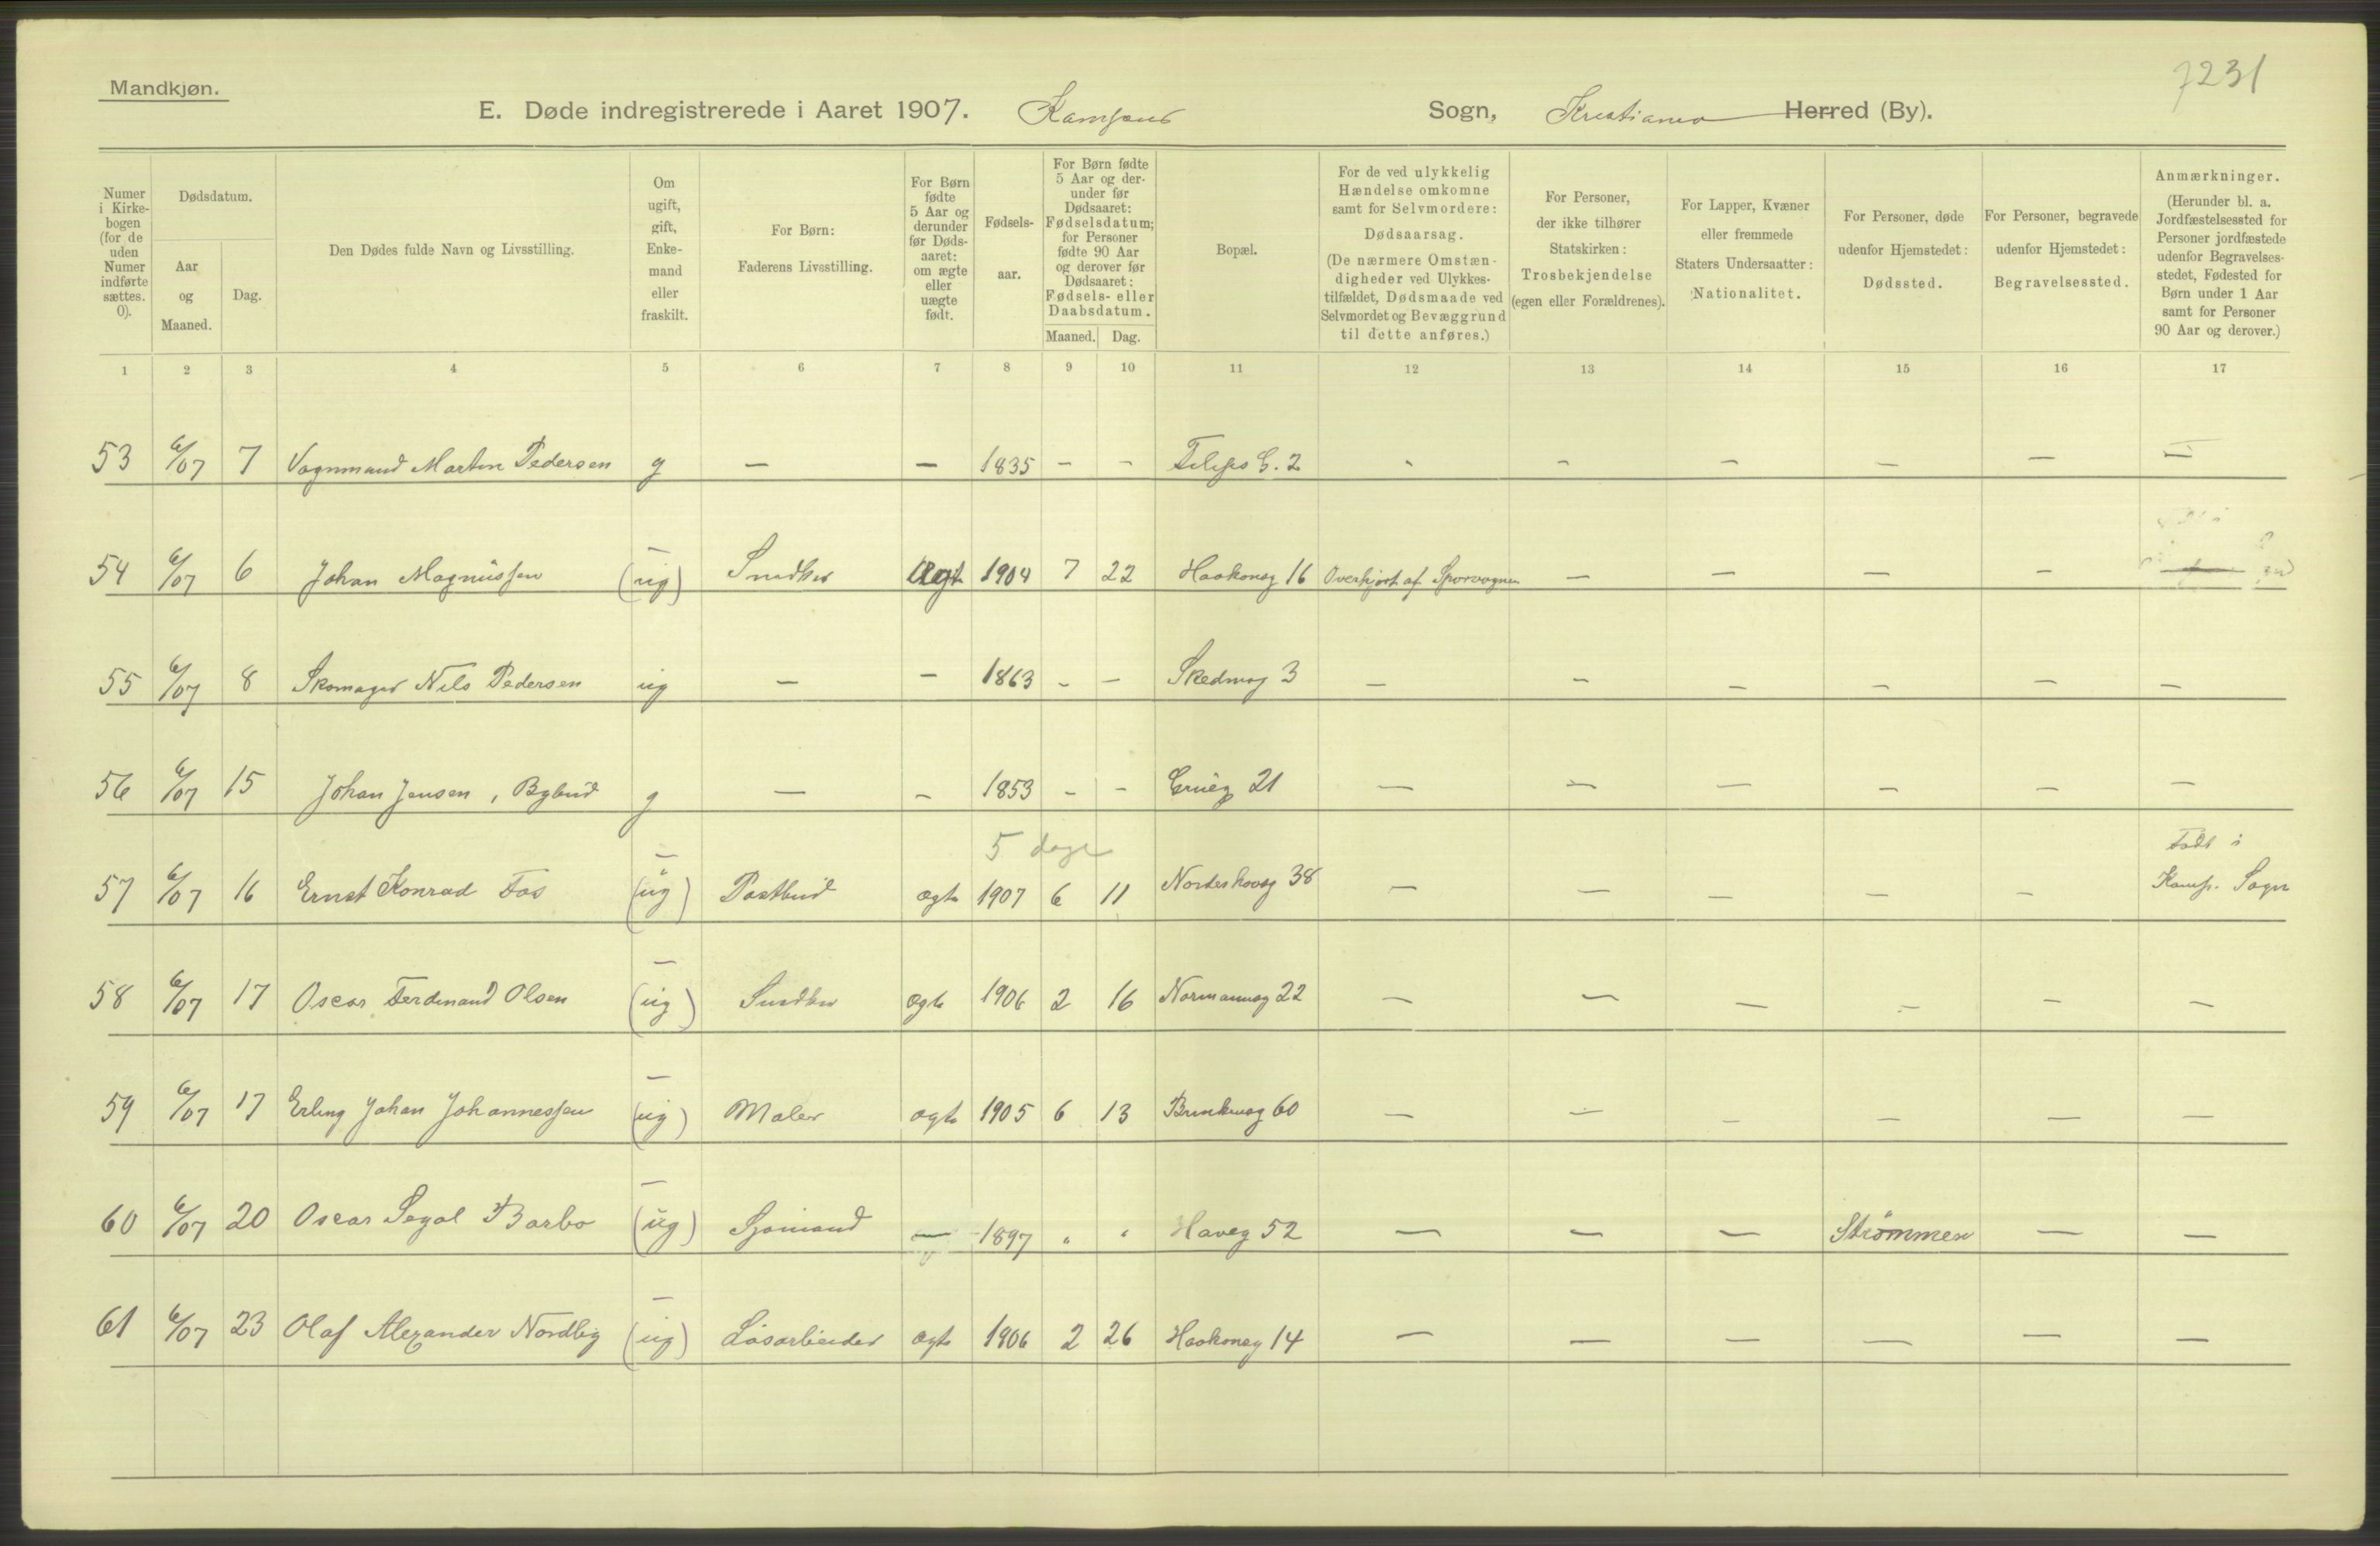 7231
Mandkjøn.
E. Døde indregistrerede i Aaret 1907. Kampens Sogn, Kristiania Herred (By).
Numer i Kirkebogen (for de uden Numer indførte sættes. 0).
Dødsdatum.
Aar og Maaned.
Dag.
Den Dødes fulde Navn og Livsstilling.
Om ugift, gift, Enkemand eller fraskilt.
For Børn: Faderens Livsstilling.
For Børn fødte 5 Aar og derunder før Dødsaaret: om ægte eller uægte født.
Fødselsaar.
For Børn fødte 5 Aar og derunder før Dødsaaret: Fødselsdatum; for Personer fødte 90 Aar og derover før Dødsaaret: Fødsels- eller Daabsdatum.
Maaned. Dag.
Bopæl.
For de ved ulykkelig Hændelse omkomne samt for Selvmordere: Dødsaarsag. (De nærmere Omstændigheder ved Ulykkestilfældet, Dødsmaade ved Selvmordet og Bevæggrund til dette anføres.)
For Personer, der ikke tilhører Statskirken: Trosbekjendelse (egen eller Forældrenes).
For Lapper, Kvæner eller fremmede Staters Undersaatter: Nationalitet.
For Personer, døde udenfor Hjemstedet: Dødssted.
For Personer, begravede udenfor Hjemstedet: Begravelsessted.
Anmærkninger. (Herunder bl. a. Jordfæstelsessted for Personer jordfæstede udenfor Begravelsesstedet, Fødested for Børn under 1 Aar samt for Personer 90 Aar og derover.)
1 2 3 4 5 6 7 8 9 10 11 12 13 14 15 16 17
53 6/07 7 Vognmand Martin Pedersen g — — 1835 — — Filips G. 2 - - — — — —
54 6/07 6 Johan Magnussen — (ug) Snedker ægte 1904 7 22 Haakonsg 16 Overkjørt af Sporvognen — — — —
55 6/07 8 Skomager Nils Pedersen ug — — 1863 - — Skedmog 3 — — — — — —
56 6/07 15 Johan Jensen, Bybud g — — 1853 - - Grueg 21 — — — — — —
5 dage
57 6/07 16 Ernst Konrad Fos — (ug) Postbud ægte 1907 6 11 Nordeshovg 38 — — — — — Født i Kamp. Sogn
58 6/07 17 Oscar Ferdinand Olsen — (ug) Snedker ægte 1906 2 16 Normannsg 22 — — — — — —
59 6/07 17 Erling Johan Johannessen — (ug) Maler ægte 1905 6 13 Brinkensg 60 — — — — — —
60 6/07 20 Oscar Segol Barbo — (ug) Sjømand — 1897 " " Haveg 52 — — — Strømmen — —
61 6/07 23 Olaf Alexander Nordlig — (ug) Løsarbeider ægte 1906 2 26 Haakonsg 14 — — — — — —